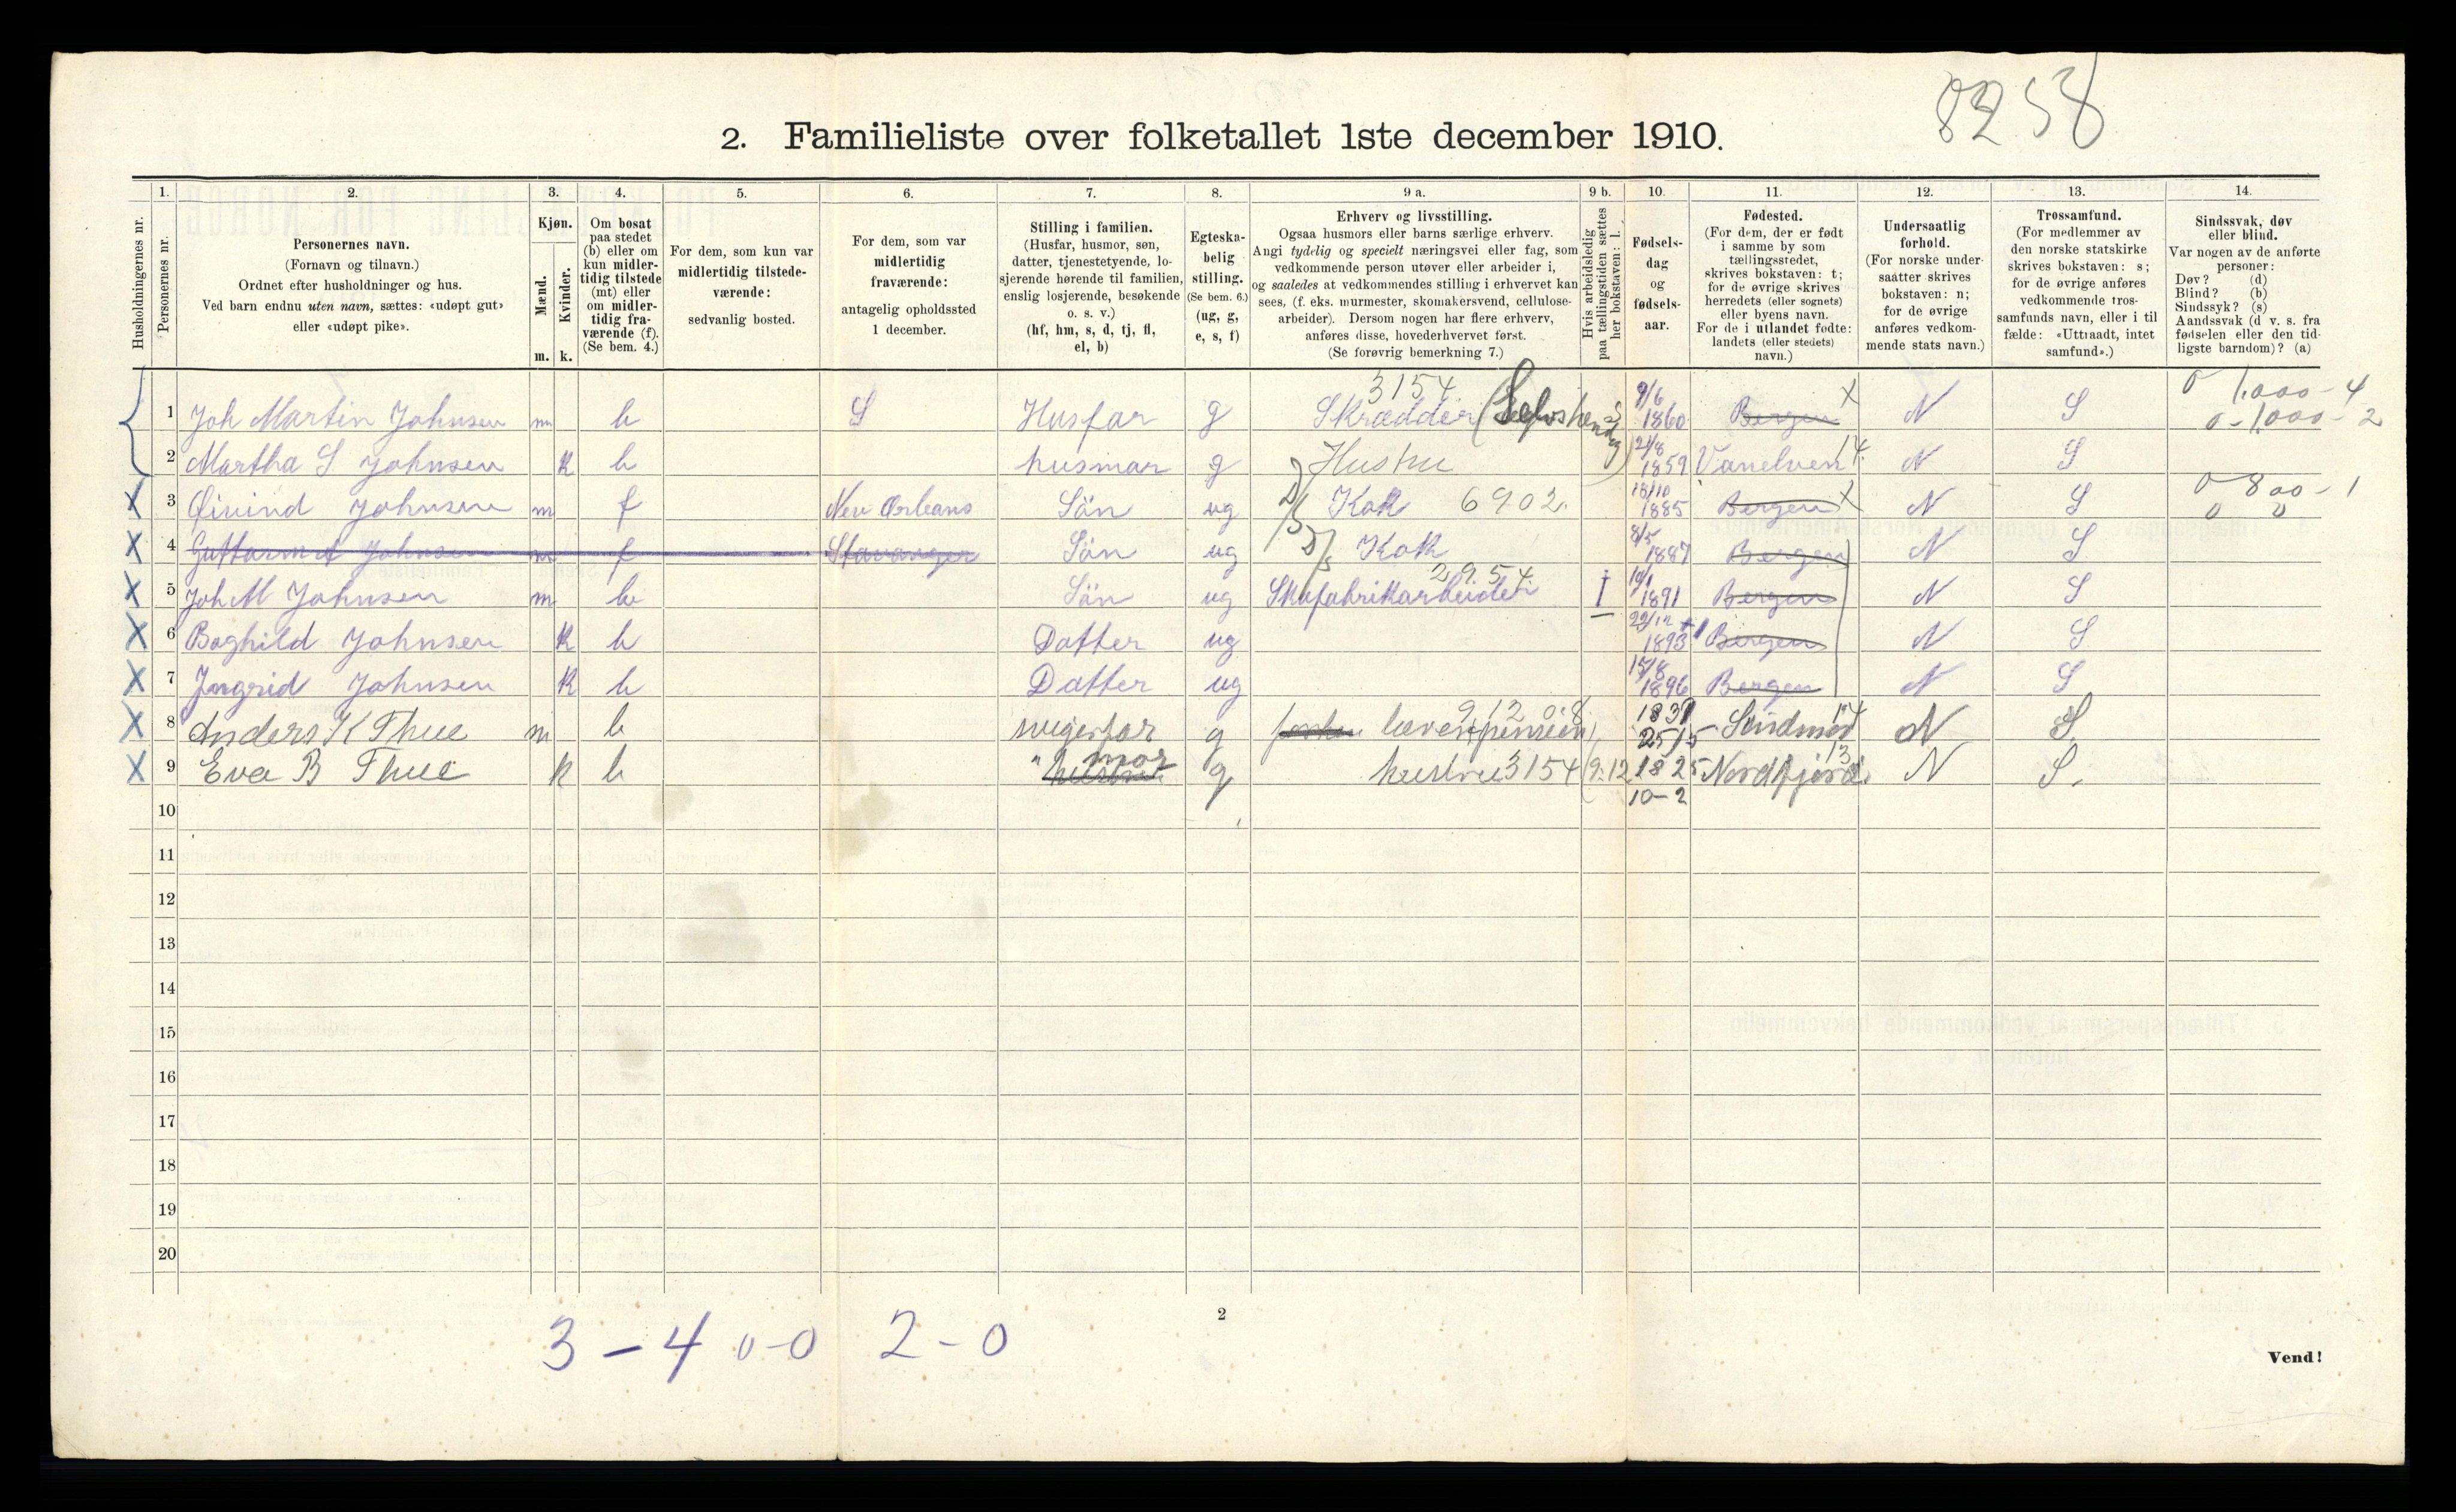 8258
2. Familieliste over folketallet 1ste december 1910.
Husholdningernes nr.
1. Personernes nr.
2. Personernes navn. (Fornavn og tilnavn.) Ordnet efter husholdninger og hus. Ved barn endnu uten navn, sættes: «udøpt gut» eller «udøpt pike».
3. Kjøn. Mænd. m. Kvinder. k.
4. Om bosat paa stedet (b) eller om kun midlertidig tilstede (mt) eller om midlertidig fraværende (f). (Se bem. 4.)
5. For dem, som kun var midlertidig tilstedeværende: sedvanlig bosted.
6. For dem, som var midlertidig fraværende: antagelig opholdssted 1 december.
7. Stilling i familien. (Husfar, husmor, søn, datter, tjenestetyende, losjerende hørende til familien, enslig losjerende, besøkende o. s. v.) (hf, hm, s, d, tj, fl, el, b)
8. Egteskabelig stilling. (Se bem. 6.) (ug, g, e, s, f)
9 a. Erhverv og livsstilling. Ogsaa husmors eller barns særlige erhverv. Angi tydelig og specielt næringsvei eller fag, som vedkommende person utøver eller arbeider i, og saaledes at vedkommendes stilling i erhvervet kan sees, (f. eks. murmester, skomakersvend, cellulosearbeider). Dersom nogen har flere erhverv, anføres disse, hovederhvervet først. (Se forøvrig bemerkning 7.)
9 b. Hvis arbeidsledig paa tællingstiden sættes her bokstaven: l.
10. Fødselsdag og fødselsaar.
11. Fødested. (For dem, der er født i samme by som tællingsstedet, skrives bokstaven: t; for de øvrige skrives herredets (eller sognets) eller byens navn. For de i utlandet fødte: landets (eller stedets) navn.)
12. Undersaatlig forhold. (For norske undersaatter skrives bokstaven: n; for de øvrige anføres vedkommende stats navn.)
13. Trossamfund. (For medlemmer av den norske statskirke skrives bokstaven: s; for de øvrige anføres vedkommende trossamfunds navn, eller i tilfælde: «Uttraadt, intet samfund».)
14. Sindssvak, døv eller blind. Var nogen av de anførte personer: Døv? (d) Blind? (b) Sindssyk? (s) Aandssvak (d v. s. fra fødselen eller den tidligste barndom)? (a)
3154 0 1.000 - 4
1 Joh Martin Johnsen m b S Husfar g Skrædder (Selvstendig) 9/6 1860 Bergen X N S 0 - 1.000 - 2
2 Martha S Johnsen k b husmor g Hustru 24/8 1859 Vanelven 14. N S
X 3 Øivind Johnsen m f New Orleans Sön ug D/S Kok 6902. 18/10 1885 Bergen X N S 0 800 - 1 0 0
X 4 Guttorm A Johnsen m f Stavanger Sön ug D/S Kok 8/5 1887 Bergen N S
X 5 Joh M Johnsen m b Sön ug Skofabrikarbeider 2954 1 10/1 1891 Bergen N S
X 6 Boghild Johnsen k b Datter ug 22/12 1893 Bergen N S
X 7 Ingrid Johnsen k b Datter ug 15/8 1896 Bergen N S
X 8 Anders K Thue m b svigerfar g lever pension 912 0.8 1831 25/5 Söndmør 14 N S.
X 9 Eva B Thue k b " mor hustru g hustru 3154 (9.12 1825 10-2 Nordfjord 13 N S.
10
11
12
13
14
15
16
17
18
19
20
2
3 - 4 0-0 2-0
Vend!